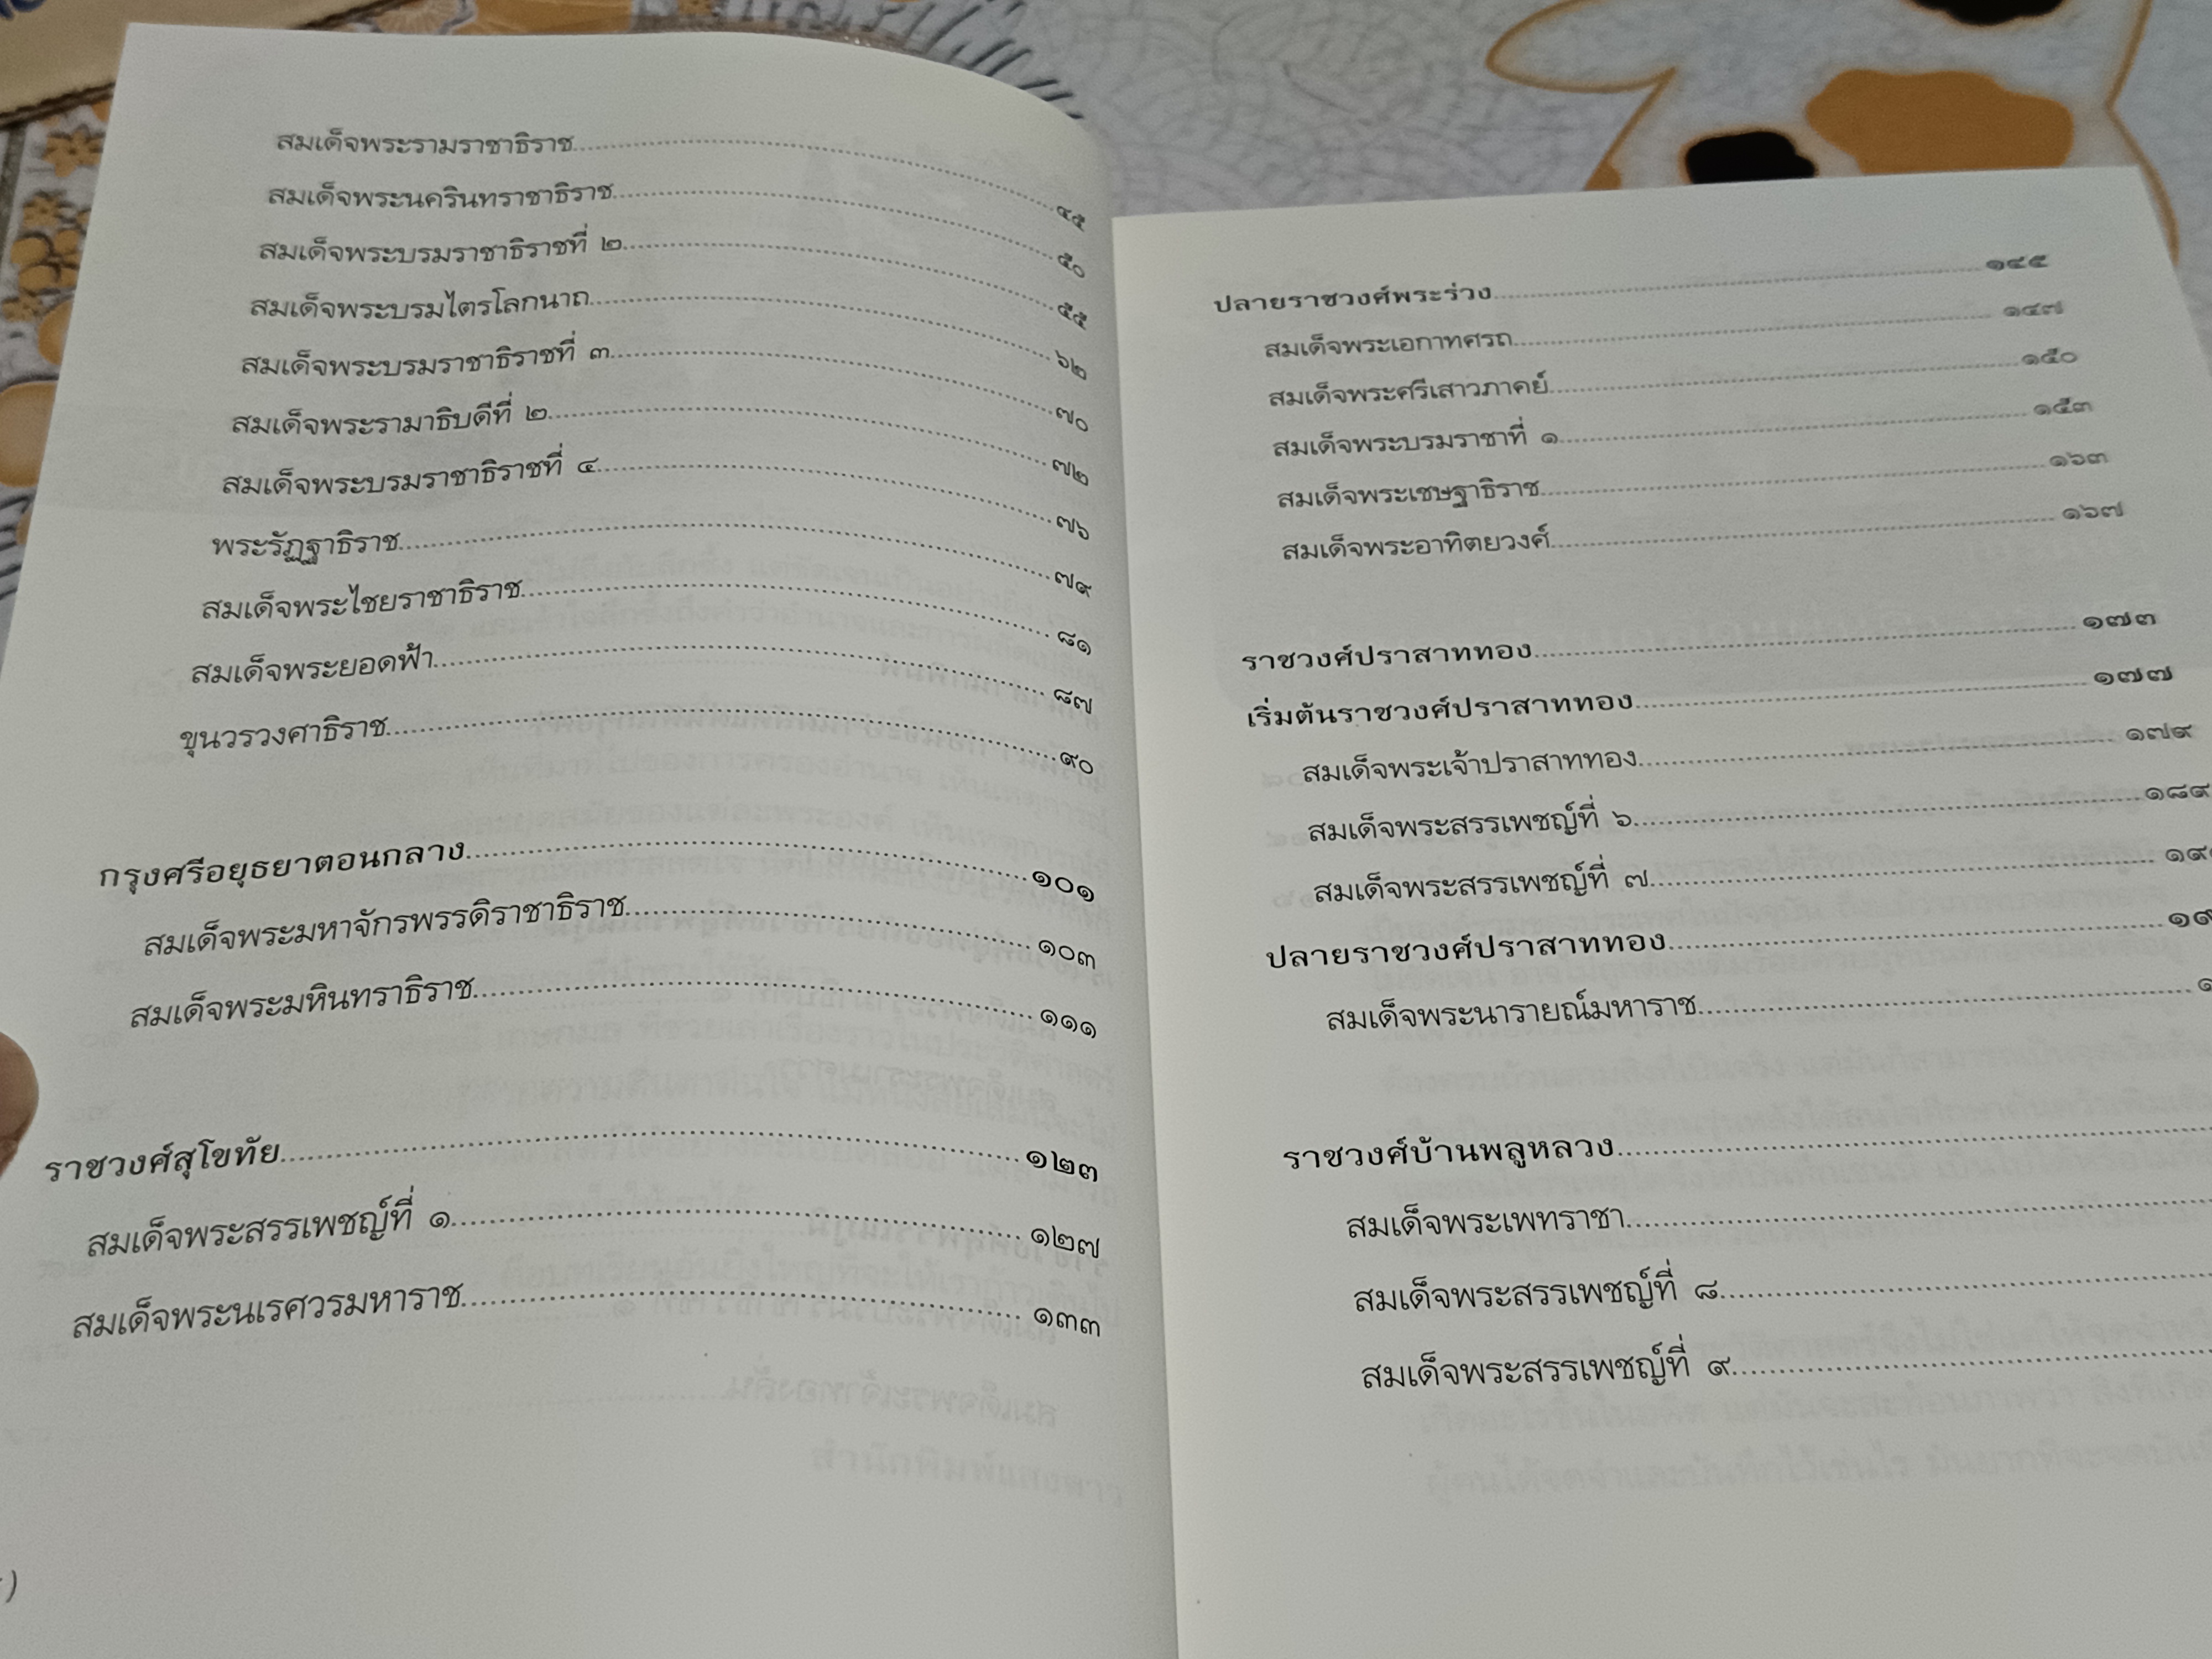 สมเด็จพระรามราชาธิราช....................๔๕
สมเด็จพระนครินทราชาธิราช....................๕๐
สมเด็จพระบรมราชาธิราชที่ ๒....................๕๕
สมเด็จพระบรมไตรโลกนาถ....................๖๒
สมเด็จพระบรมราชาธิราชที่ ๓....................๗๐
สมเด็จพระรามาธิบดีที่ ๒....................๗๒
สมเด็จพระบรมราชาธิราชที่ ๔....................๗๖
พระรัฏฐาธิราช....................๗๙
สมเด็จพระไชยราชาธิราช....................๘๑
สมเด็จพระยอดฟ้า....................๘๗
ขุนวรวงศาธิราช....................๙๐
กรุงศรีอยุธยาตอนกลาง....................๑๐๑
สมเด็จพระมหาจักรพรรดิราชาธิราช....................๑๐๓
สมเด็จพระมหินทราธิราช....................๑๑๑
ราชวงศ์สุโขทัย....................๑๒๓
สมเด็จพระสรรเพชญ์ที่ ๑....................๑๒๗
สมเด็จพระนเรศวรมหาราช....................๑๓๓
ปลายราชวงศ์พระร่วง....................๑๔๕
สมเด็จพระเอกาทศรถ....................๑๔๗
สมเด็จพระศรีเสาวภาคย์....................๑๕๐
สมเด็จพระบรมราชาที่ ๑....................๑๕๓
สมเด็จพระเชษฐาธิราช....................๑๖๓
สมเด็จพระอาทิตยวงศ์....................๑๖๗
ราชวงศ์ปราสาททอง....................๑๗๓
เริ่มต้นราชวงศ์ปราสาททอง....................๑๗๗
สมเด็จพระเจ้าปราสาททอง....................๑๗๙
สมเด็จพระสรรเพชญ์ที่ ๖....................๑๘๙
สมเด็จพระสรรเพชญ์ที่ ๗....................
ปลายราชวงศ์ปราสาททอง....................
สมเด็จพระนารายณ์มหาราช....................
ราชวงศ์บ้านพลูหลวง....................
สมเด็จพระเพทราชา....................
สมเด็จพระสรรเพชญ์ที่ ๘....................
สมเด็จพระสรรเพชญ์ที่ ๙....................